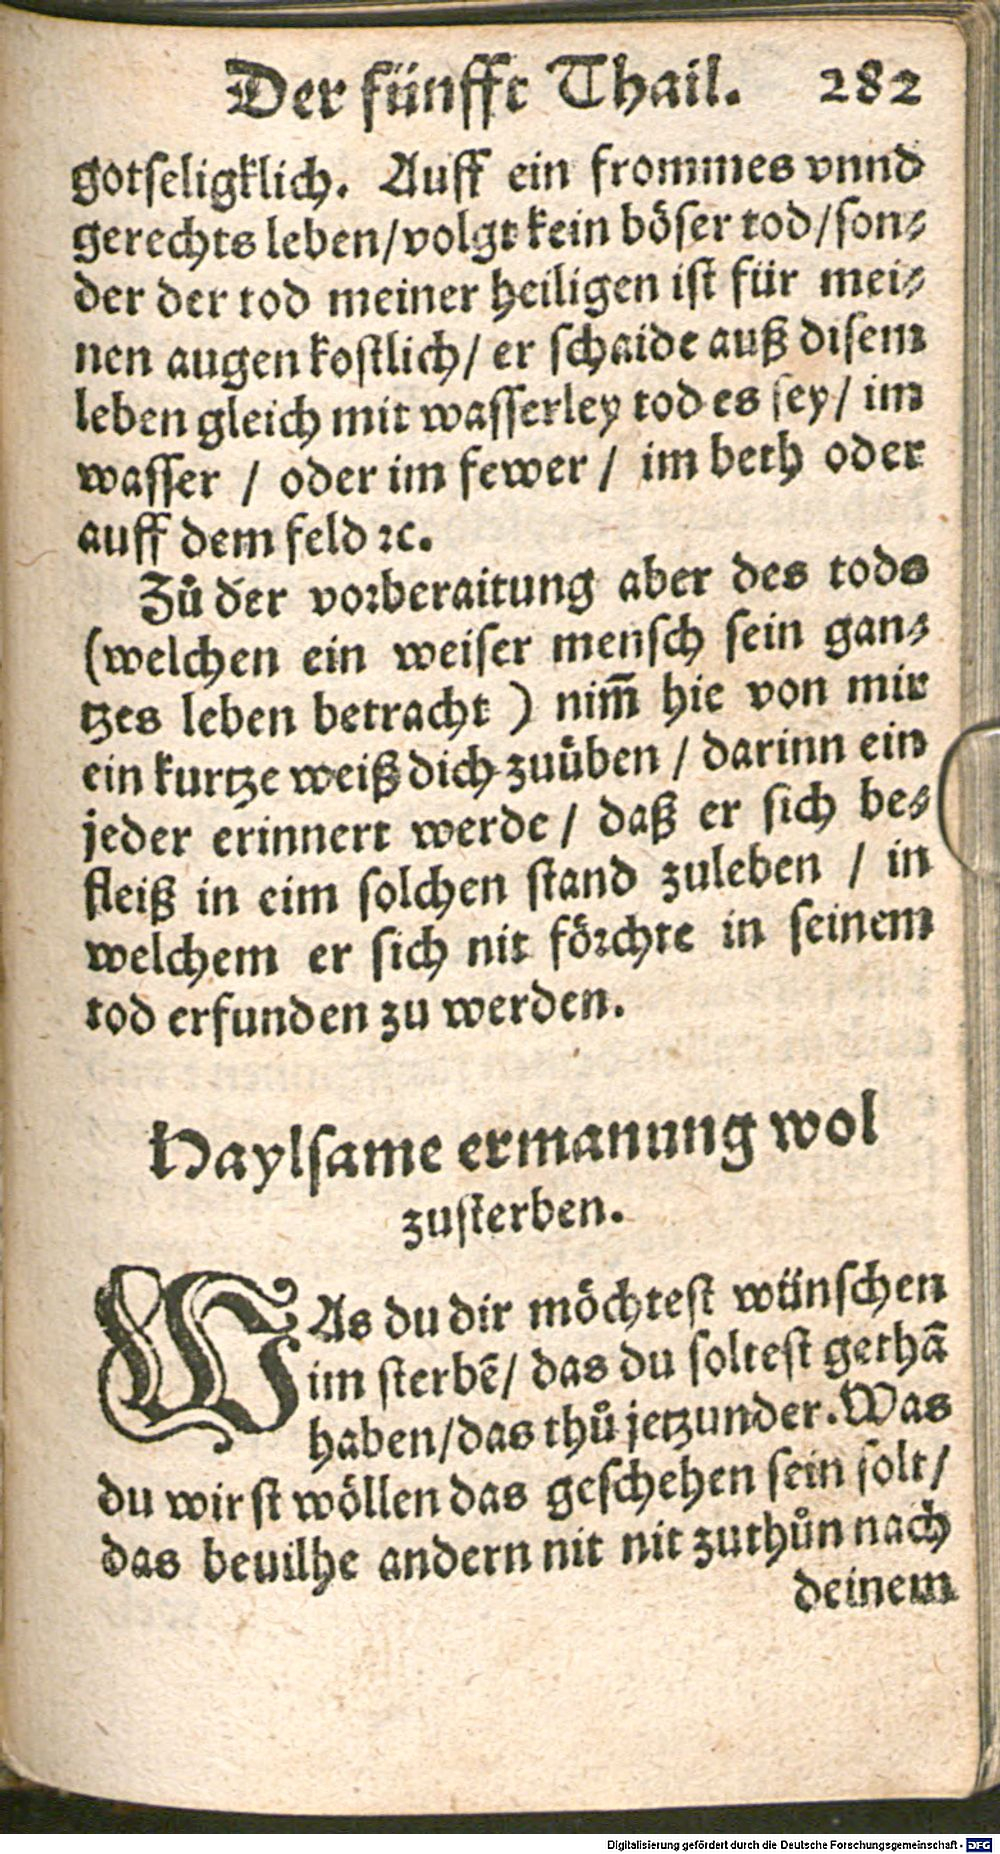 Der fünfft Thail. 282
gotseligklich. Auff ein frommes vnnd
gerechts leben/volgt kein böser tod/son⸗
der der tod meiner heiligen ist für mei⸗
nen augen kostlich/ er schaide auß disem
leben gleich mit wasserley tod es sey/ im
wasser / oder im fewer / im beth oder
auff dem feld ꝛc.
Zů der vorberaitung aber des tods
(welchen ein weiser mensch sein gan⸗
tzes leben betracht ) nim̃ hie von mir
ein kurtze weiß dich zuüben / darinn ein
jeder erinnert werde / daß er sich be⸗
fleiß in eim solchen stand zuleben / in
welchem er sich nit förchte in seinem
tod erfunden zu werden.
Haylsame ermanung wol
zusterben.
WAs du dir möchtest wünschen
im sterbē/ das du soltest gethā
haben/das thů jetzunder. Was
du wirst wöllen das geschehen sein solt/
das beuilhe andern nit nit zuthůn nach
deinem
Digitalisierung gefördert durch die Deutsche Forschungsgemeinschaft - DFG